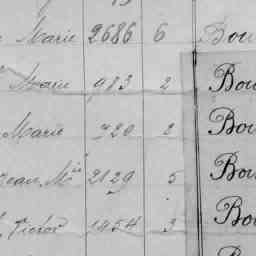 Marie 2686 6 Bou
Marie 983 2 Bou
Marie 720 2 Bou
Jean Mie 2129 5 Bou
Victor 1454 3 Bou